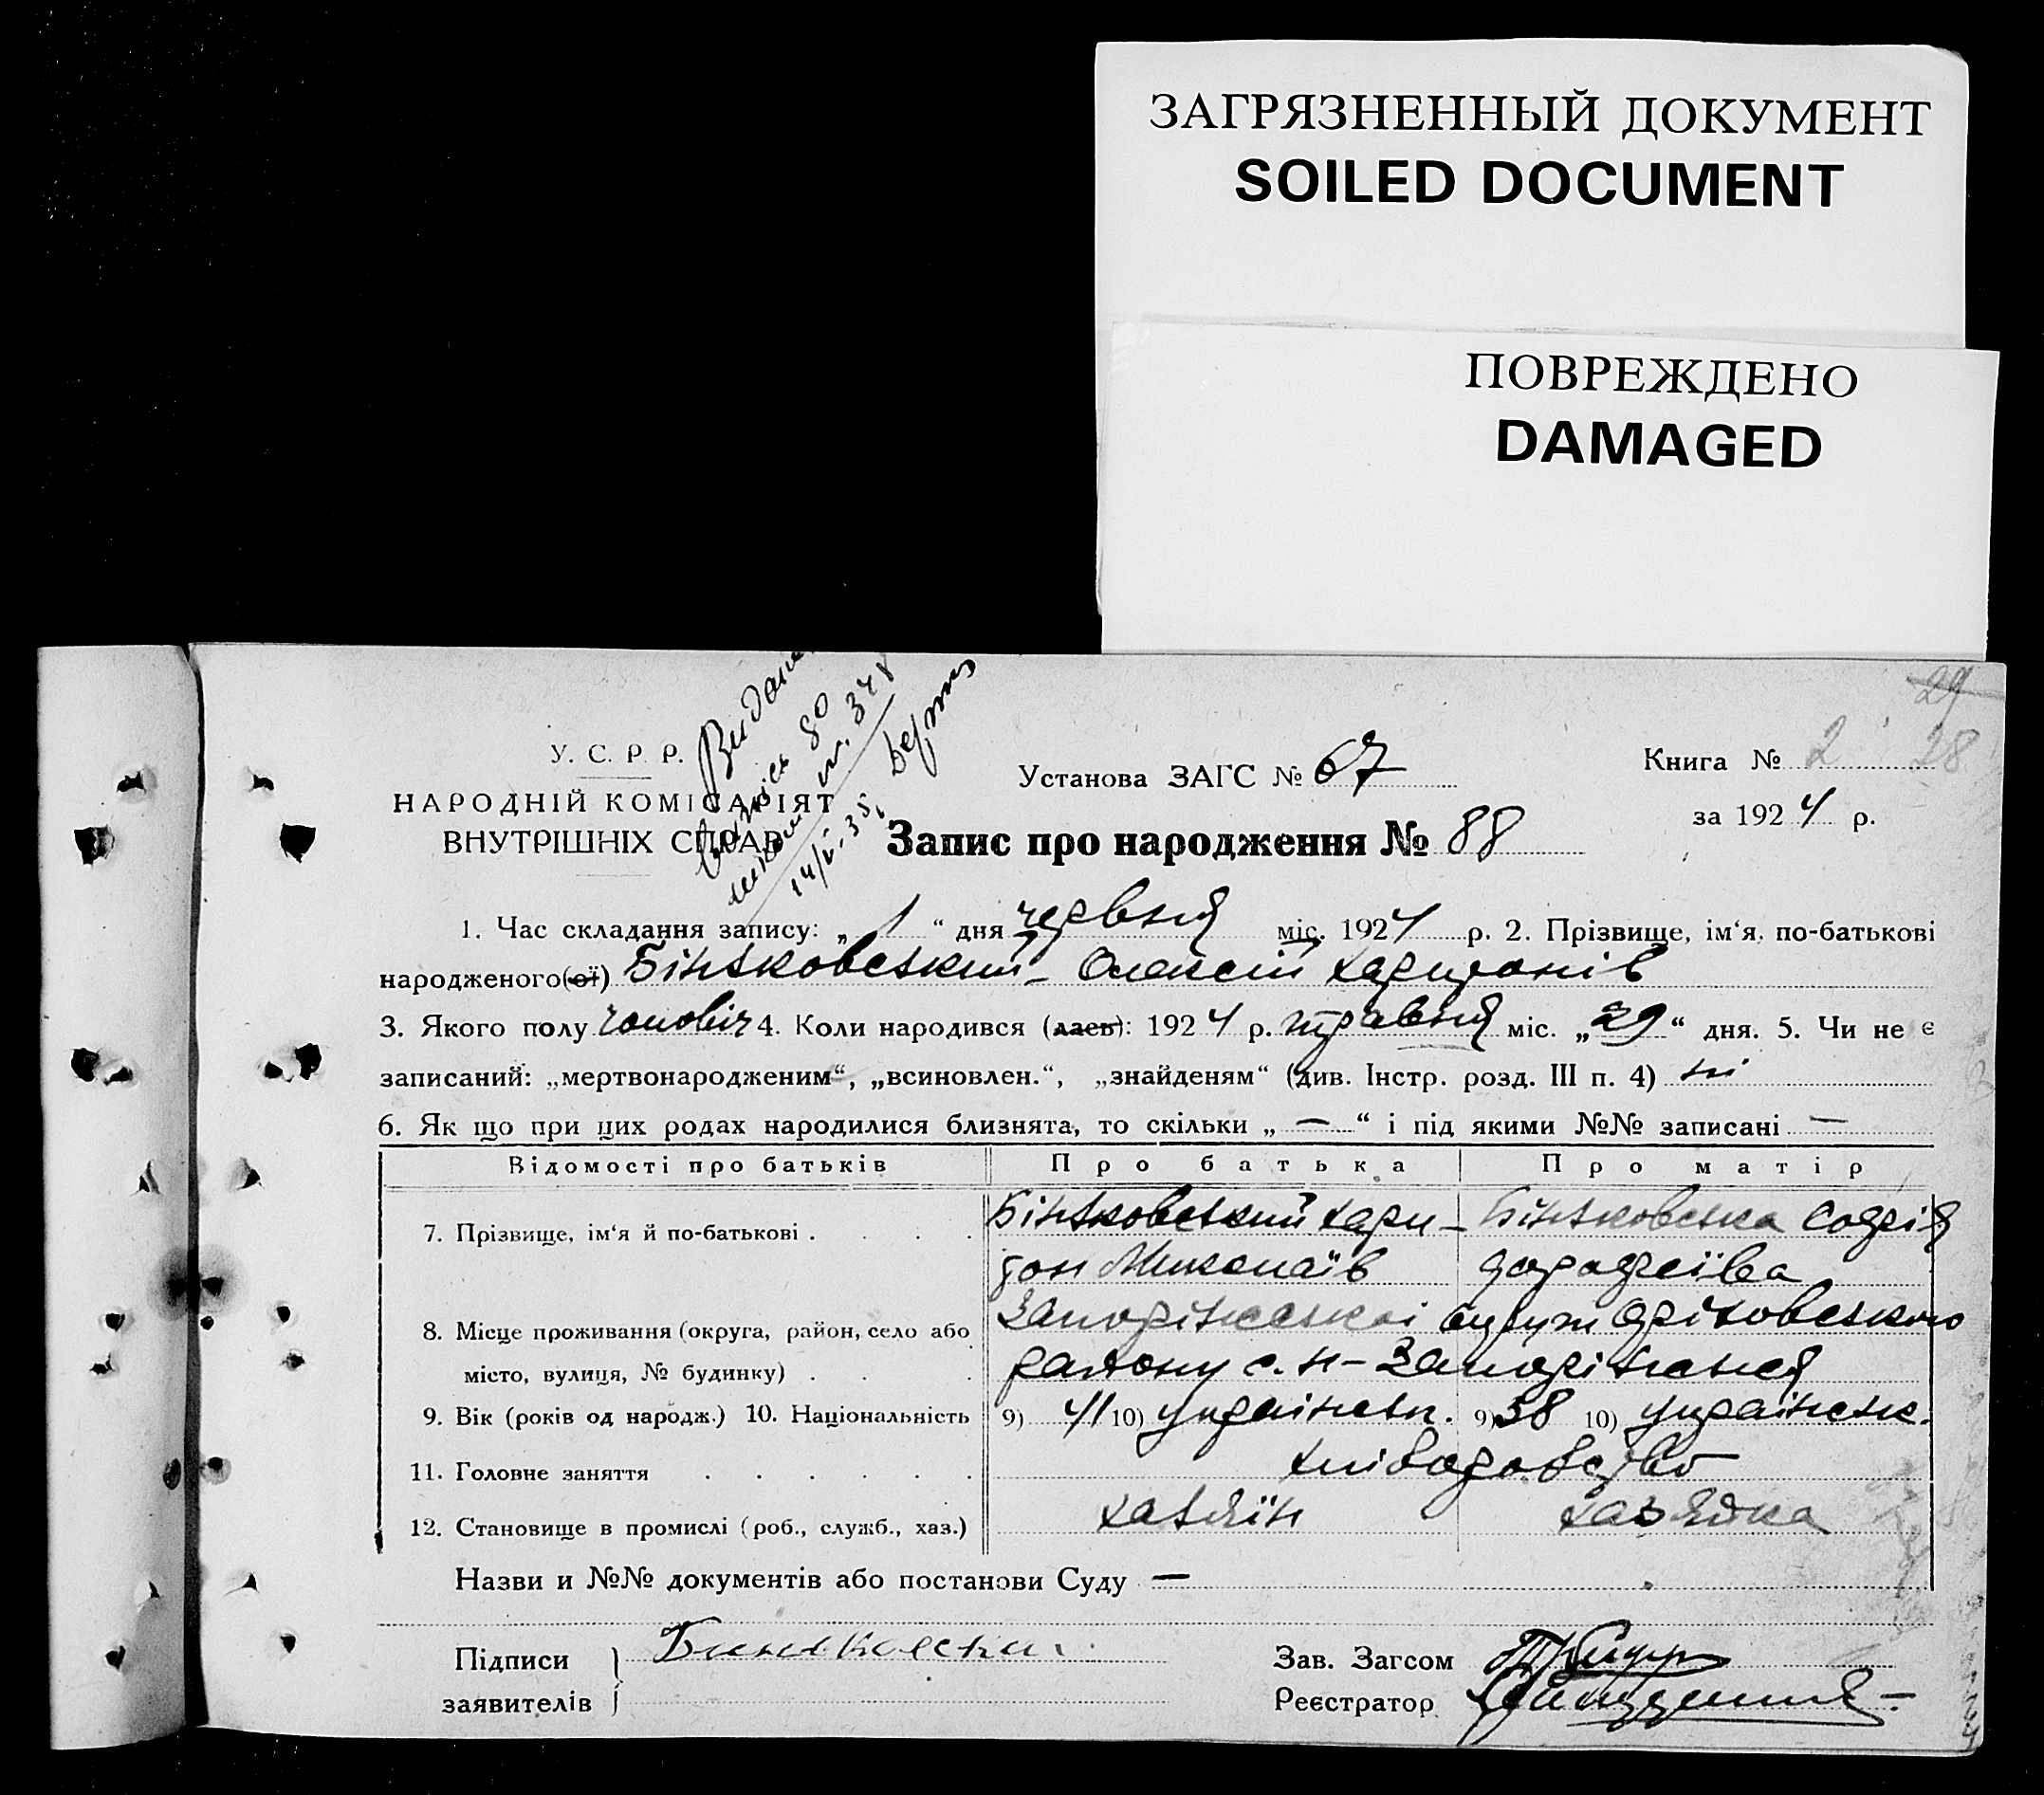 ЗАГРЯЗНЕННЫЙ ДОКУМЕНТ
SOILED DOCUMENT
ПОВРЕЖДЕНО
DAMAGED
29
28
У. С. Р. Р.
НАРОДНІЙ КОМІСАРІЯТ
ВНУТРІШНІХ СПРАВ
Видано
80
348
14/V-35
Установа ЗАГС № 67
Книга № 2
за 1924 р.
Запис про народження № 88
1. Час складання запису: „ 1 “ дня червня міс. 1924 р. 2. Прізвище, ім‘я, по-батькові
народженого(ої) Біньковський Олексій Харитонів
3. Якого полу чоловіч 4. Коли народився (лась): 1924 р. травня міс. „29“ дня. 5. Чи не є
записаний: „мертвонародженим“, „всиновлен.“, „знайденям“ (див. Інстр. розд. III п. 4) ні
6. Як що при цих родах народилися близнята, то скільки „ — “ і під якими №№ записані —
Відомості про батьків Про батька Про матір
7. Прізвище, ім‘я й по-батькові . Біньковський Хари- Біньковська Софія
тон Миколаїв Дорофеївa
8. Місце проживання (округа, район, село або Запоріжської округи Оріховського
місто, вулиця, № будинку) . району с. Н-Запоріжжя
9. Вік (років од народж.) 10. Національність 9) 41 10) українськ. 9) 38 10) українськ.
11. Головне заняття хліборобство
12. Становище в промислі (роб., служб., хаз.) хазяїн хазяйка
Назви и №№ документів або постанови Суду —
Підписи Биньковский
заявителів
Зав. Загсом
Реєстратор